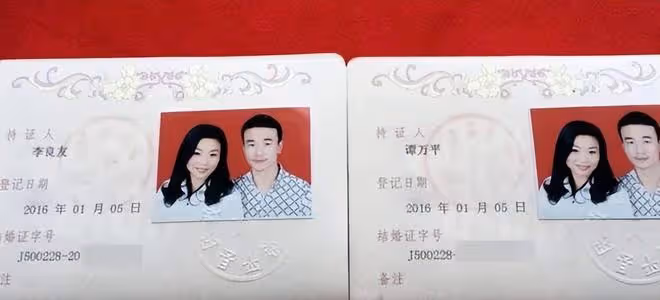 持证人
李良友
登记日期
2016 年 01 月 05 日
结婚证字号
J500228-20
备注
持证人
谭万平
登记日期
2016 年 01 月 05 日
结婚证字号
J500228-
备注